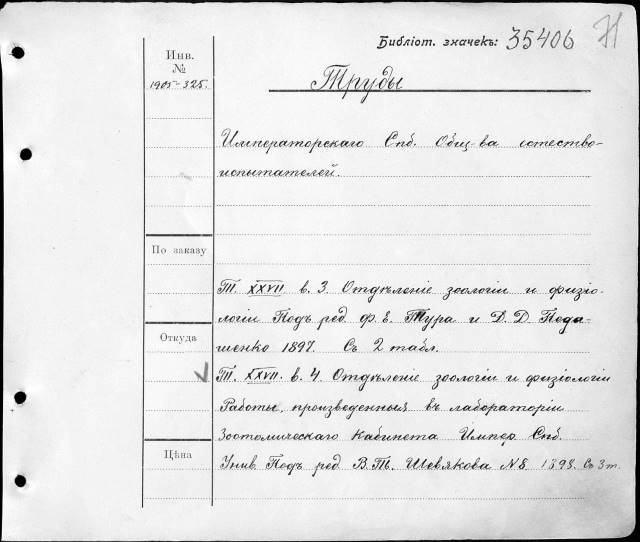 Библіот. значекъ: 35406 Н
Инв.
№
1905-325.
Труды
Императорскаго Спб. Общ-ва естество-
испытателей.
По заказу
Т. XXVII в. 3. Отдѣленіе зоологіи и физіо-
логіи Подъ ред. Ф. Е. Тура и Д. Д. Педа-
шенко 1897. Съ 2 табл.
Откуда
Т. XXVII. в. 4. Отдѣленіе зоологіи и физіологіи
Работы, произведенныя въ лабораторіи
Зоотомическаго Кабинета Импер. Спб.
Цѣна
Унив. Подъ ред. В. Т. Шевякова №8. 1898. Съ 3 т.